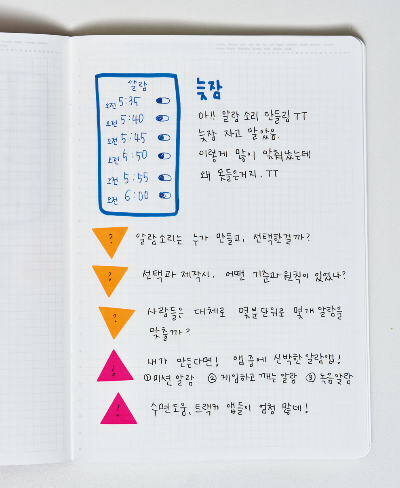 알람
오전 5:35
오전 5:40
오전 5:45
오전 5:50
오전 5:55
오전 6:00
늦잠
아!! 알람 소리 안들림 TT
늦잠 자고 말았음.
이렇게 많이 맞춰놨는데
왜 못들은거지. TT
? 알람소리는 누가 만들고, 선택한걸까?
? 선택과 제작시. 어떤 기준과 원칙이 있었나?
? 사람들은 대체로 몇분단위로 몇개 알람을
맞출까?
! 내가 만든다면! 앱 중에 신박한 알람앱!
①미션 알람 ②게임하고 깨는 알람 ③녹음알람
! 수면도움, 트랙커 앱들이 엄청 많네!